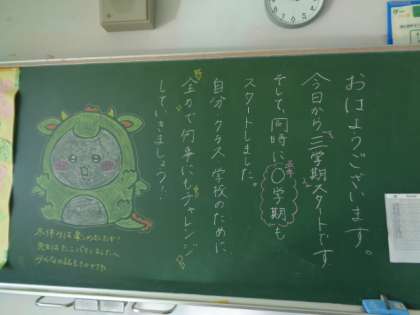 おはようございます。
今日から三学期スタートです
そして、同時に〇学期も
スタートしました。
自分・クラス・学校のために
全力で何事にもチャレンジ
していきましょう!
冬休みは楽しめましたか?